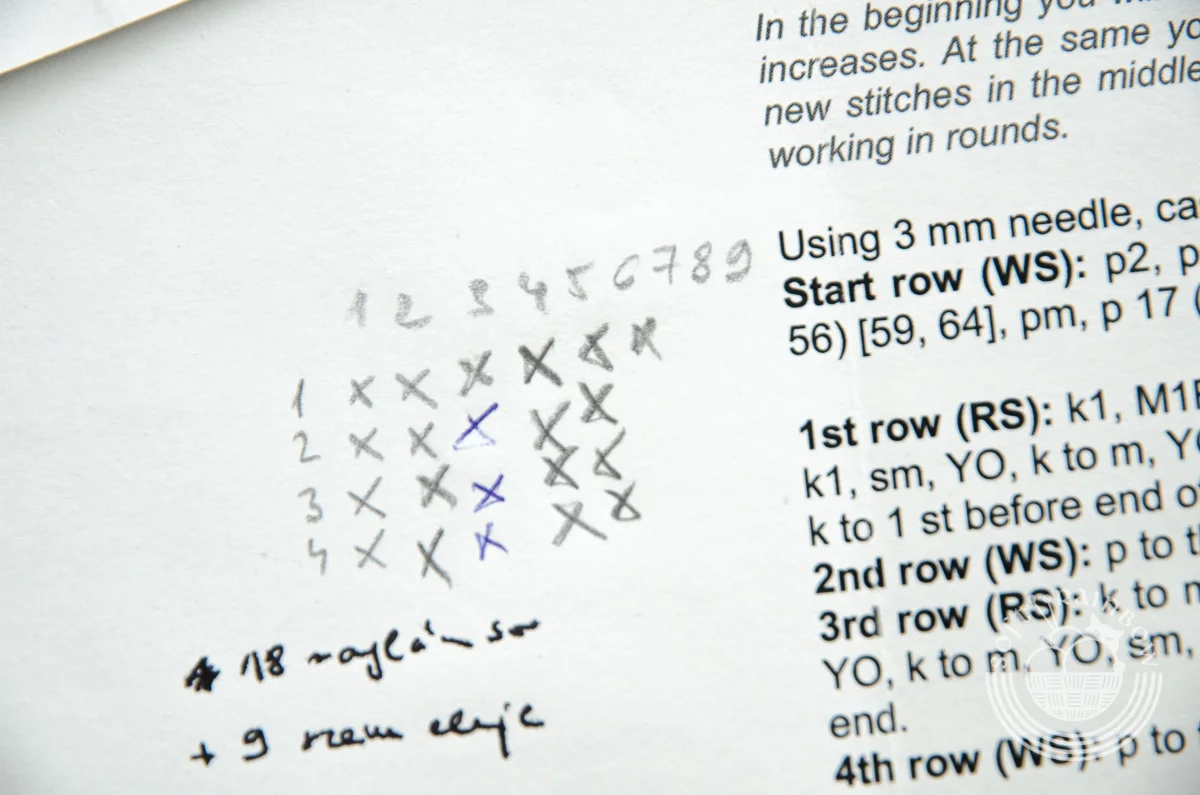 In the beginning you
increases. At the same yo
new stitches in the middle
working in rounds.
Using 3 mm needle, ca
Start row (WS): p2, p
56) [59, 64], pm, p 17 (
1st row (RS): k1, M1
k1, sm, YO, k to m, Y
k to 1 st before end o
2nd row (WS): p to t
3rd row (RS): k to m
YO, k to m, YO, sm,
end.
4th row (WS): p to
1 2 3 4 5 6 7 8 9
1 x x x x x x
2 x x x x x
3 x x x x x
4 x x x x x
18 raglán sor
+ 9 szem eleje